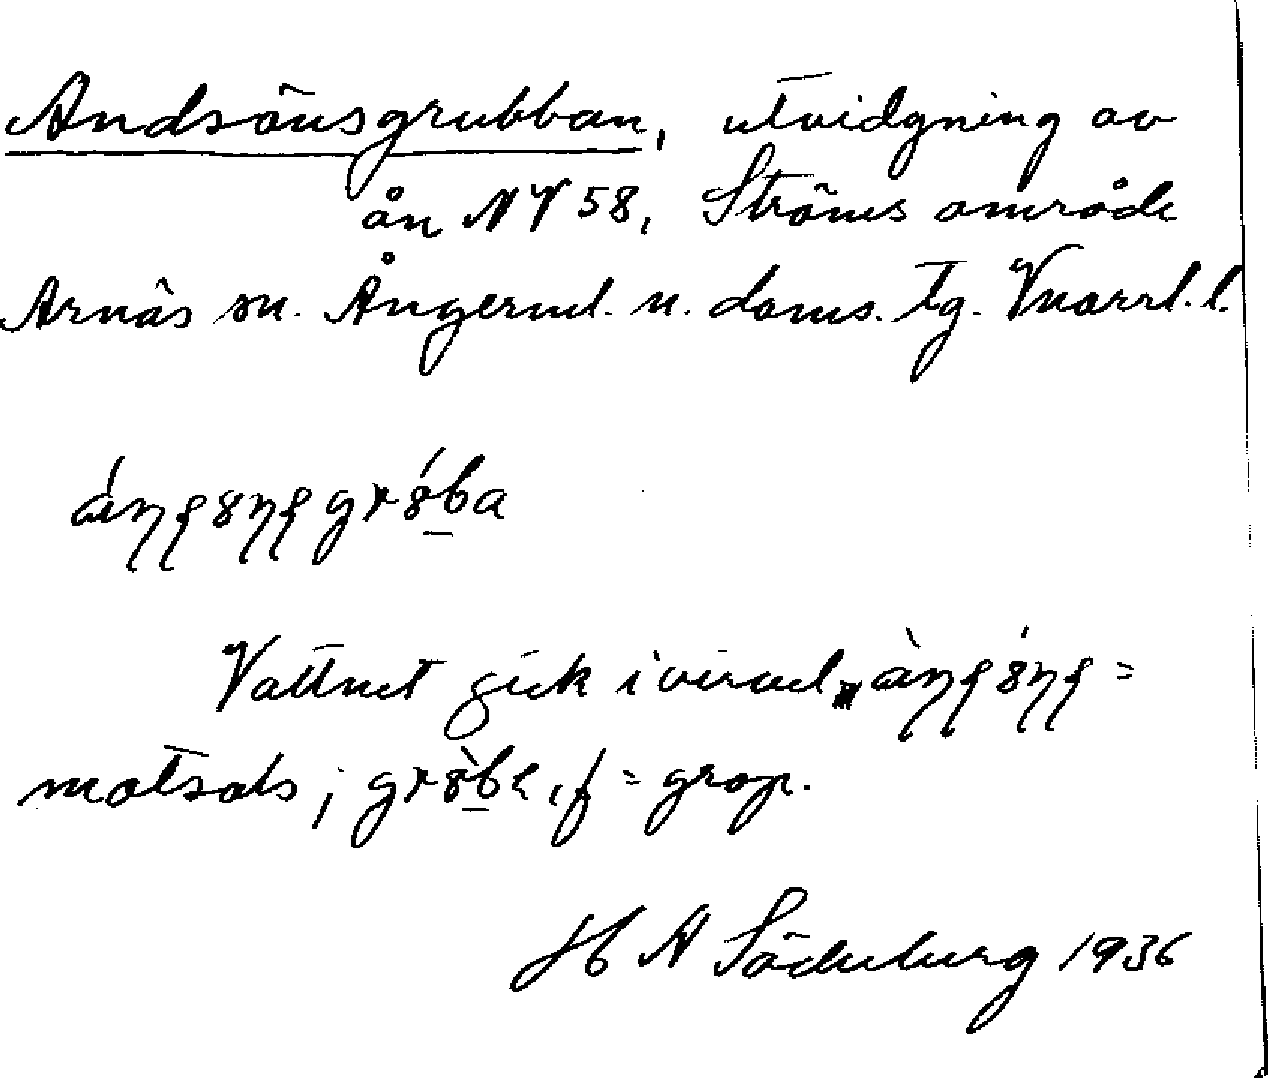 Andsönsgrubban, utvidgning av
ån NV 58, Ströms område
Arnäs sn. Ångerml. n. doms. tg. Vnorrl. l.
Vattnet gick i virvel,
motsols; f = grop.
H A Söderberg 1936